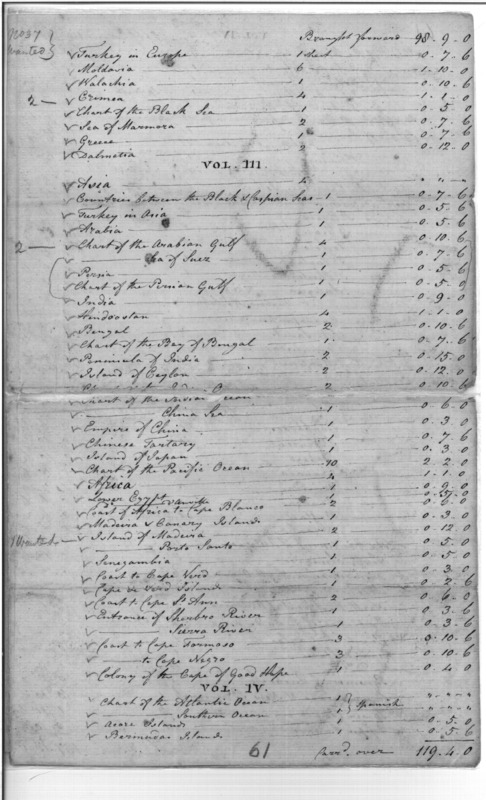 No 37 Brought forward 98 . 9 . 0
wanted }
✓ Turkey in Europe 1 Sheet 0 . 7 . 6
✓ Moldavia 6 1 . 10 . 0
✓ Walachia 1 0 . 10 . 6
2 — ✓ Crimea 4 1 . 1 . 0
✓ Chart of the Black Sea 1 0 . 5 . 0
✓ Sea of Marmora 2 0 . 7 . 6
✓ Greece 1 0 . 7 . 6
✓ Dalmatia 2 0 . 12 . 0
VOL. III.
✓ Asia 4 " " "
✓ Countries between the Black & Caspian Seas 1 0 . 7 . 6
✓ Turkey in Asia 1 0 . 5 . 6
✓ Arabia 1 0 . 5 . 6
2 — ✓ Chart of the Arabian Gulf 4 0 . 10 . 6
✓ Sea of Suez 1 0 . 7 . 6
✓ Persia 1 0 . 5 . 6
✓ Chart of the Persian Gulf 1 0 . 5 . 0
✓ India 1 0 . 9 . 0
✓ Hindoostan 4 1 . 1 . 0
✓ Bengal 2 0 . 10 . 6
✓ Chart of the Bay of Bengal 1 0 . 7 . 6
✓ Peninsula of India 2 0 . 15 . 0
✓ Island of Ceylon 2 0 . 12 . 0
✓ Chart of the Indian Ocean 2 0 . 10 . 6
✓ China Sea 1 0 . 6 . 0
✓ Empire of China 1 0 . 3 . 0
✓ Chinese Tartary 1 0 . 7 . 6
✓ Island of Japan 1 0 . 3 . 0
✓ Chart of the Pacific Ocean 10 2 . 2 . 0
✓ Africa 4 1 . 1 . 0
✓ Lower Egypt 1 0 . 9 . 0
✓ Coast of Africa to Cape Blanco 2 0 . 6 . 0
✓ Madeira & Canary Islands 1 0 . 3 . 0
1 Wanted — ✓ Island of Madeira 2 0 . 12 . 0
✓ Porto Santo 1 0 . 5 . 0
✓ Senegambia 1 0 . 5 . 0
✓ Coast to Cape Verd 1 0 . 3 . 0
✓ Cape de Verd Islands 1 0 . 2 . 6
✓ Coast to Cape St Ann 2 0 . 6 . 0
✓ Entrance of Sherbro River 1 0 . 3 . 6
✓ Sierra River 1 0 . 3 . 6
✓ Coast to Cape Formoso 3 0 . 10 . 6
✓ to Cape Negro 3 0 . 10 . 6
✓ Colony of the Cape of Good Hope 1 0 . 4 . 0
VOL. IV.
✓ Chart of the Atlantic Ocean 1 } Spanish " " "
✓ Southern Ocean 1 " " "
✓ Azore Islands 1 0 . 5 . 0
✓ Bermudas Islands 1 0 . 5 . 6
61 Carrd. over 119 . 4 . 0